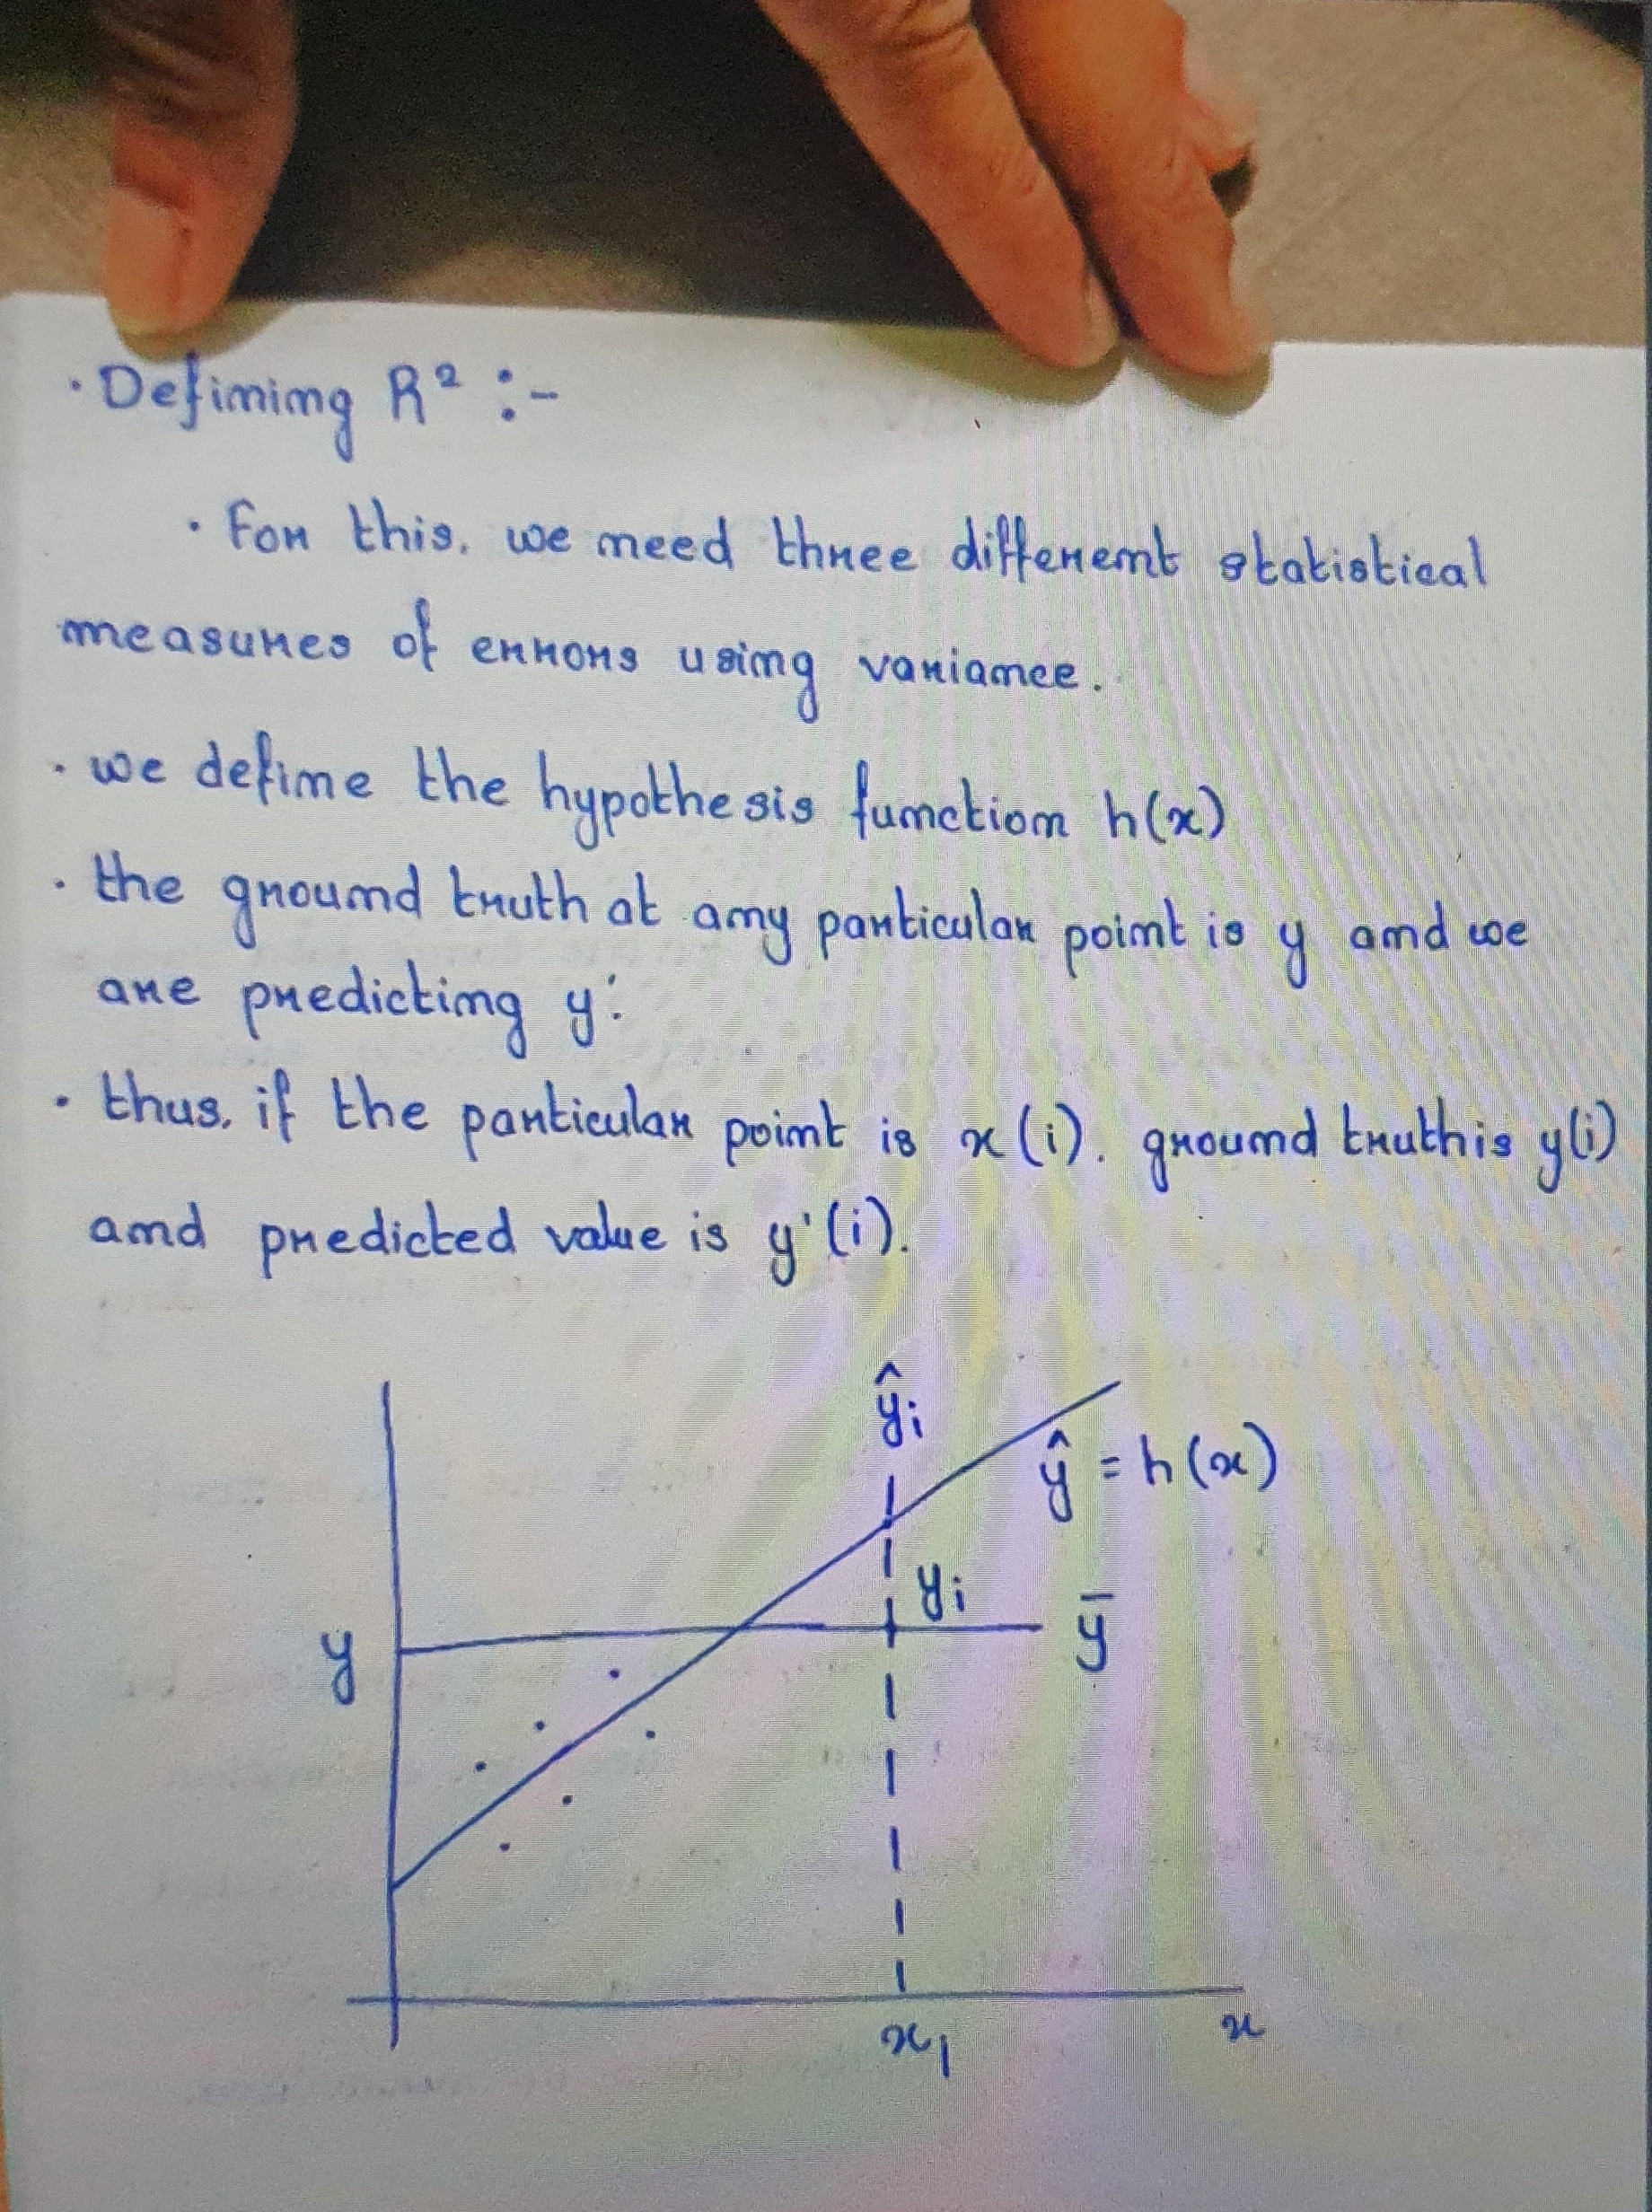 · Defining R² :-
· For this, we need three different statistical
measures of errors using variance.
· we define the hypothesis function h(x)
· the ground truth at any particular point is y and we
are predicting y'.
· thus, if the particular point is x(i). ground truth is y(i)
and predicted value is y'(i).
ŷi
ŷ = h(x)
yi
y
ȳ
x1
x